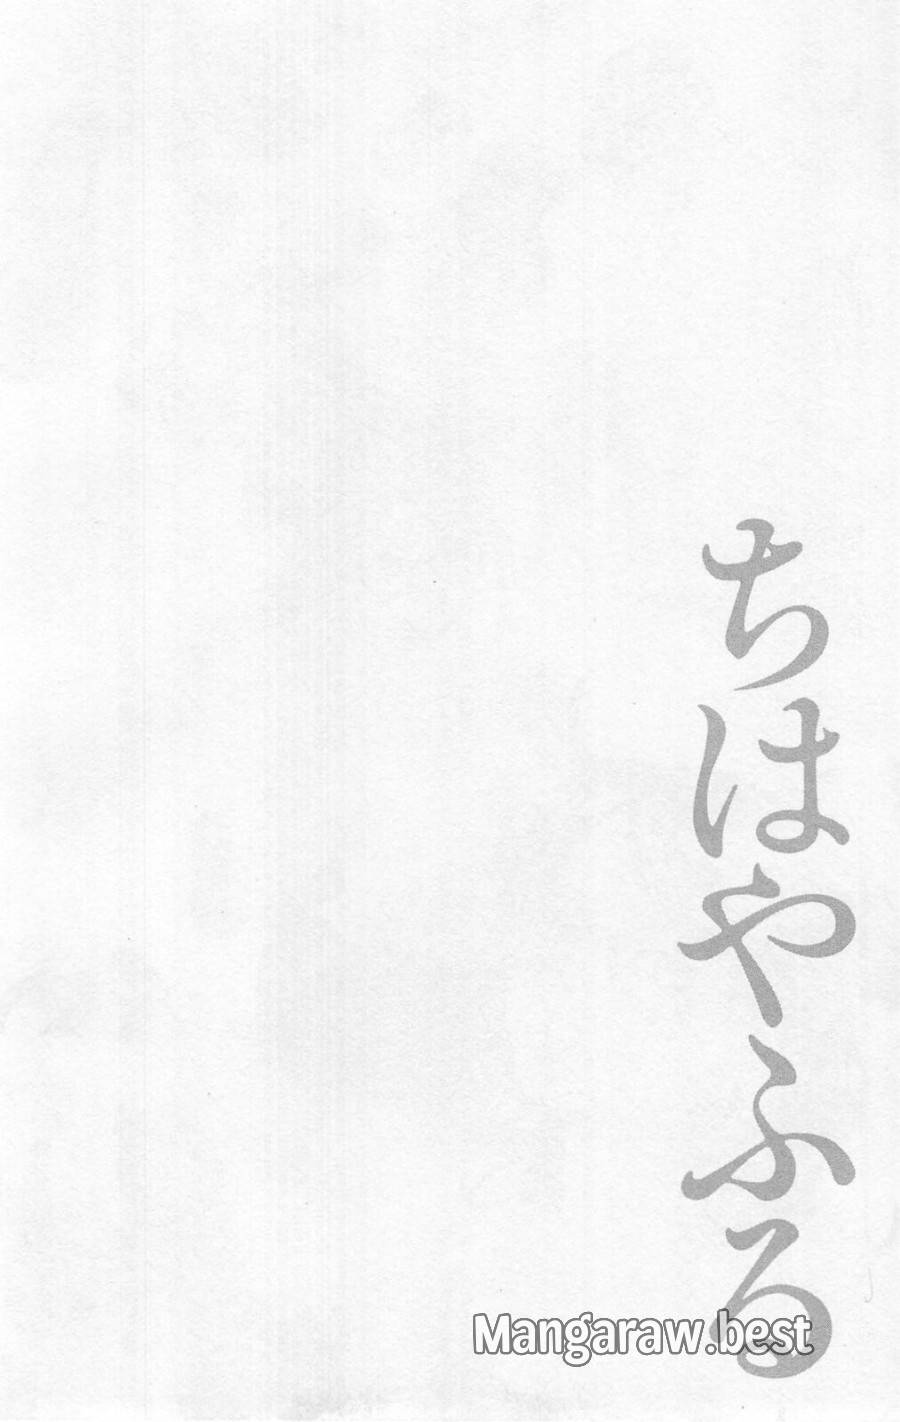 ちはやふる
Mangaraw.best